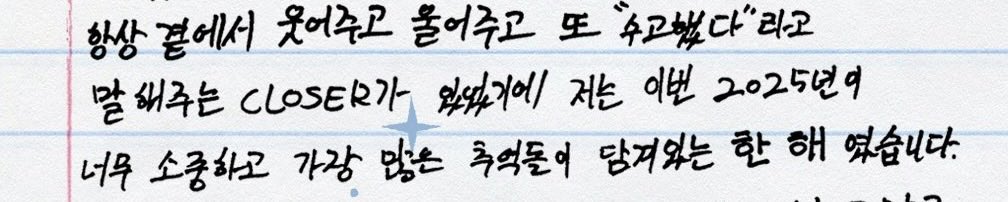 항상 곁에서 웃어주고 울어주고 또 "수고했다"라고
말해주는 CLOSER가 있었기에 저는 이번 2025년이
너무 소중하고 가장 많은 추억들이 담겨있는 한 해 였습니다.